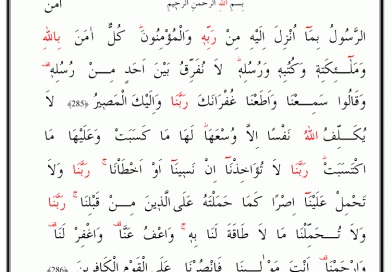 بِسْمِ اللهِ الرَّحْمٰنِ الرَّحِيمِ
اٰمَنَ
الرَّسُولُ بِمَٓا اُنْزِلَ اِلَيْهِ مِنْ رَبِّهِ وَالْمُؤْمِنُونَۜ كُلٌّ اٰمَنَ بِاللهِ
وَمَلٰٓئِكَتِهِ وَكُتُبِهِ وَرُسُلِهِۜ لَا نُفَرِّقُ بَيْنَ اَحَدٍ مِنْ رُسُلِهِ
وَقَالُوا سَمِعْنَا وَاَطَعْنَا غُفْرَانَكَ رَبَّنَا وَاِلَيْكَ الْمَصِيرُ ﴿285﴾ لَا
يُكَلِّفُ اللهُ نَفْسًا اِلَّا وُسْعَهَاۜ لَهَا مَا كَسَبَتْ وَعَلَيْهَا مَا
اكْتَسَبَتْۜ رَبَّنَا لَا تُؤَاخِذْنَٓا اِنْ نَسِينَٓا اَوْ اَخْطَأْنَاۚ رَبَّنَا وَلَا
تَحْمِلْ عَلَيْنَٓا اِصْرًا كَمَا حَمَلْتَهُ عَلَى الَّذِينَ مِنْ قَبْلِنَاۚ رَبَّنَا
وَلَا تُحَمِّلْنَا مَا لَا طَاقَةَ لَنَا بِهِۚ وَاعْفُ عَنَّا۠ وَاغْفِرْ لَنَا۠
وَارْحَمْنَا۠ اَنْتَ مَوْلٰينَا فَانْصُرْنَا عَلَى الْقَوْمِ الْكَافِرِينَ ﴿286﴾